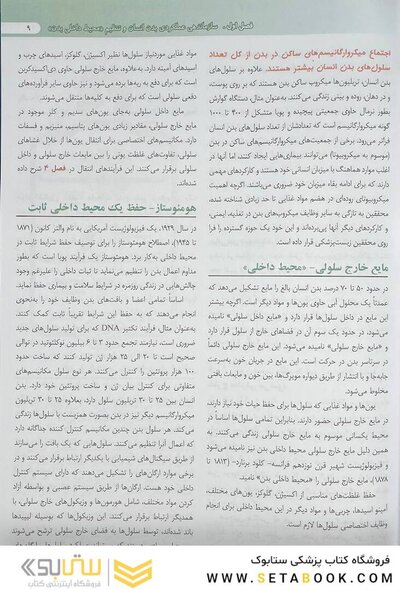 فصل اول. سازماندهی عملکردی بدن انسان و تنظیم «محیط داخلی بدن»
۹
اجتماع میکروارگانیسم‌های ساکن در بدن از کل تعداد
سلول‌های بدن انسان بیشتر هستند. علاوه بر سلول‌های
بدن انسان، تریلیون‌ها میکروب ساکن بدن هستند که بر روی پوست،
و در دهان، روده و بینی زندگی می‌کنند. به‌عنوان مثال دستگاه گوارش
به‌طور نرمال حاوی جمعیتی پیچیده و پویا متشکل از ۴۰۰ تا ۱۰۰۰
گونه میکروارگانیسم است که تعدادشان از تعداد سلول‌های بدن انسان
فراتر می‌رود. برخی از جمعیت‌های میکروارگانیسم‌های ساکن در بدن
(موسوم به میکروبیوتا) می‌توانند بیماری‌هایی ایجاد کنند، اما آنها در
اغلب موارد هماهنگ با میزبان انسانی خود هستند و کارکردهای مهمی
دارند که برای ادامه بقاء میزبان خود ضروری می‌باشند. اگرچه اهمیت
میکروبیوتای روده‌ای در هضم مواد غذایی تا حد زیادی شناخته شده،
محققین به تازگی به سایر وظایف میکروب‌های بدن در تغذیه، ایمنی،
و کارکردهای دیگر آنها پی‌برده‌اند و این خود یک حوزه گسترده را فرا
روی محققین زیست‌پزشکی قرار داده است.
مایع خارج سلولی- «محیط داخلی»
در حدود ۵۰ تا ۷۰ درصد بدن انسان بالغ را مایع تشکیل می‌دهد که
عمدتاً یک محلول آبی حاوی یون‌ها و مواد دیگر است. اگرچه بیشتر
این مایع در داخل سلول‌ها قرار دارد و «مایع داخل سلولی» نامیده
می‌شود، در حدود یک سوم آن در فضاهای خارج از سلول قرار دارد
و «مایع خارج سلولی» نامیده می‌شود. این مایع خارج سلولی دائماً
در سرتاسر بدن در حرکت است. این مایع در جریان خون به‌سرعت
جابه‌جا و با انتشار از طریق دیواره مویرگ‌ها، بین خون و مایعات بافتی
مخلوط می‌شود.
یون‌ها و مواد غذایی که سلول‌ها برای حفظ حیات خود نیاز دارند،
در مایع خارج سلولی حضور دارند. بنابراین تمامی سلول‌ها اساساً در
محیط یکسانی موسوم به مایع خارج سلولی زندگی می‌کنند. به
همین دلیل مایع خارج سلولی محیط داخلی بدن نیز نامیده می‌شود
و فیزیولوژیست شهیر قرن نوزدهم فرانسه- کلود برنارد- (۱۸۱۳ تا
۱۸۷۸)، مایع خارج سلولی را «محیط داخلی بدن» نامید.
حفظ غلظت‌های مناسبی از اکسیژن، گلوکز، یون‌های مختلف،
آمینو اسیدها، چربی‌ها و مواد دیگر در این محیط داخلی برای انجام
وظایف اختصاصی سلول‌ها لازم است.
مواد غذایی موردنیاز سلول‌ها نظیر اکسیژن، گلوکز، اسیدهای چرب و
اسیدهای آمینه دارد. به‌علاوه، مایع خارج سلولی حاوی دی‌اکسیدکربن
است که برای دفع به ریه‌ها برده می‌شود و نیز حاوی سایر فرآورده‌های
دفعی سلولی است که برای دفع به کلیه‌ها منتقل می‌شوند.
مایع داخل سلولی به‌جای یون‌های سدیم و کلر موجود در
مایع خارج سلولی، مقادیر زیادی یون پتاسیم، منیزیم و فسفات
دارد. مکانیسم‌های اختصاصی برای انتقال یون‌ها از خلال غشاهای
سلولی، تفاوت‌های غلظت یونی را بین مایعات خارج سلولی و داخل
سلولی برقرار می‌کنند. این فرآیندهای انتقال در فصل ۴ شرح داده
شده‌اند.
هومئوستاز- حفظ یک محیط داخلی ثابت
در سال ۱۹۲۹، یک فیزیولوژیست آمریکایی به نام والتر کانون (۱۸۷۱
تا ۱۹۴۵)، اصطلاح هومئوستاز را برای توصیف حفظ شرایط ثابت در
محیط داخلی به‌کار برد. هومئوستاز یک فرآیند پویا است که به‌طور
مداوم اعمال بدن را تنظیم می‌نماید تا ثبات داخلی را علیرغم وجود
چالش‌هایی در زندگی روزمره در شرایط سلامت و بیماری حفظ نماید.
اساساً تمامی اعضا و بافت‌های بدن وظایف خود را به‌نحوی
انجام می‌دهند که به حفظ این شرایط تقریباً ثابت کمک کنند.
به‌عنوان مثال، فرآیند تکثیر DNA که برای تولید سلول‌های جدید
ضروری است، نیازمند تجمع حدود ۳ تا ۶ بیلیون نوکلئوتید در توالی
صحیح است تا ۲۰ الی ۲۵ هزار ژن تولید کنند که ساخت حدود
۱۰۰ هزار پروتئین را کنترل می‌کنند. هر نوع سلول مکانیسم‌های
متفاوتی برای کنترل بیان ژن و ساخت پروتئین خود دارد. بدن
انسان بین ۲۵ تا ۳۰ تریلیون سلول دارد، بعلاوه ۲۵ تا ۳۰ تریلیون
میکروارگانیسم دیگر نیز در بدن بصورت همزیست با سلول‌ها زندگی
می‌کند. هر سلول بدن چندین مکانیسم کنترل کننده جداگانه دارد
که اعمال آنرا تنظیم می‌کنند. سلول‌هایی که یک بافت را می‌سازند
از طریق سیگنال‌های شیمیایی با یکدیگر ارتباط برقرار می‌کنند و در
برخی موارد ارگان‌هایی را تشکیل می‌دهند که دارای سیستم کنترل
داخلی خود هست. ارگان‌ها از طریق سیستم عصبی و بواسطه آزاد
کردن مواد مختلف، شامل هورمون‌ها و وزیکول‌های خارج سلولی، با
همدیگر ارتباط برقرار می‌کنند. این وزیکول‌ها که بوسیله لیپیدها
باند شده‌اند، توسط سلول‌ها به فضای خارج سلولی ترشح می‌شوند
فروشگاه کتاب پزشکی ستابوک
WWW.SETABOOK.COM
ستابوک
فروشگاه اینترنتی کتاب